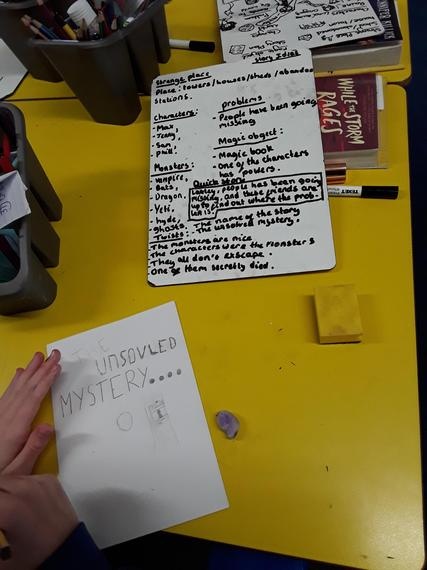 story Idiol
strange place
Place: towers/houses/sheds/abandoned
stations.
Characters:
- Max,
- Sam,
- phill.
problems
- People have been going
missing
Magic object:
- Magic book
- One of the characters
has powers.
Monsters:
- vampire,
- Bats,
- Dragon,
- Yeti,
- hyde,
- ghosts.
Quick story
Lately people has been going
missing, and these friends are
up to find out where the prob-
lem is.
The name of the story
The unsolved mystery.
Twists:
The monsters are nice
The characters were the Monsters
They all don't exscape.
One of them secretly died.
WHILE THE STORM
RAGES
THE
UNSOVLED
MYSTERY....